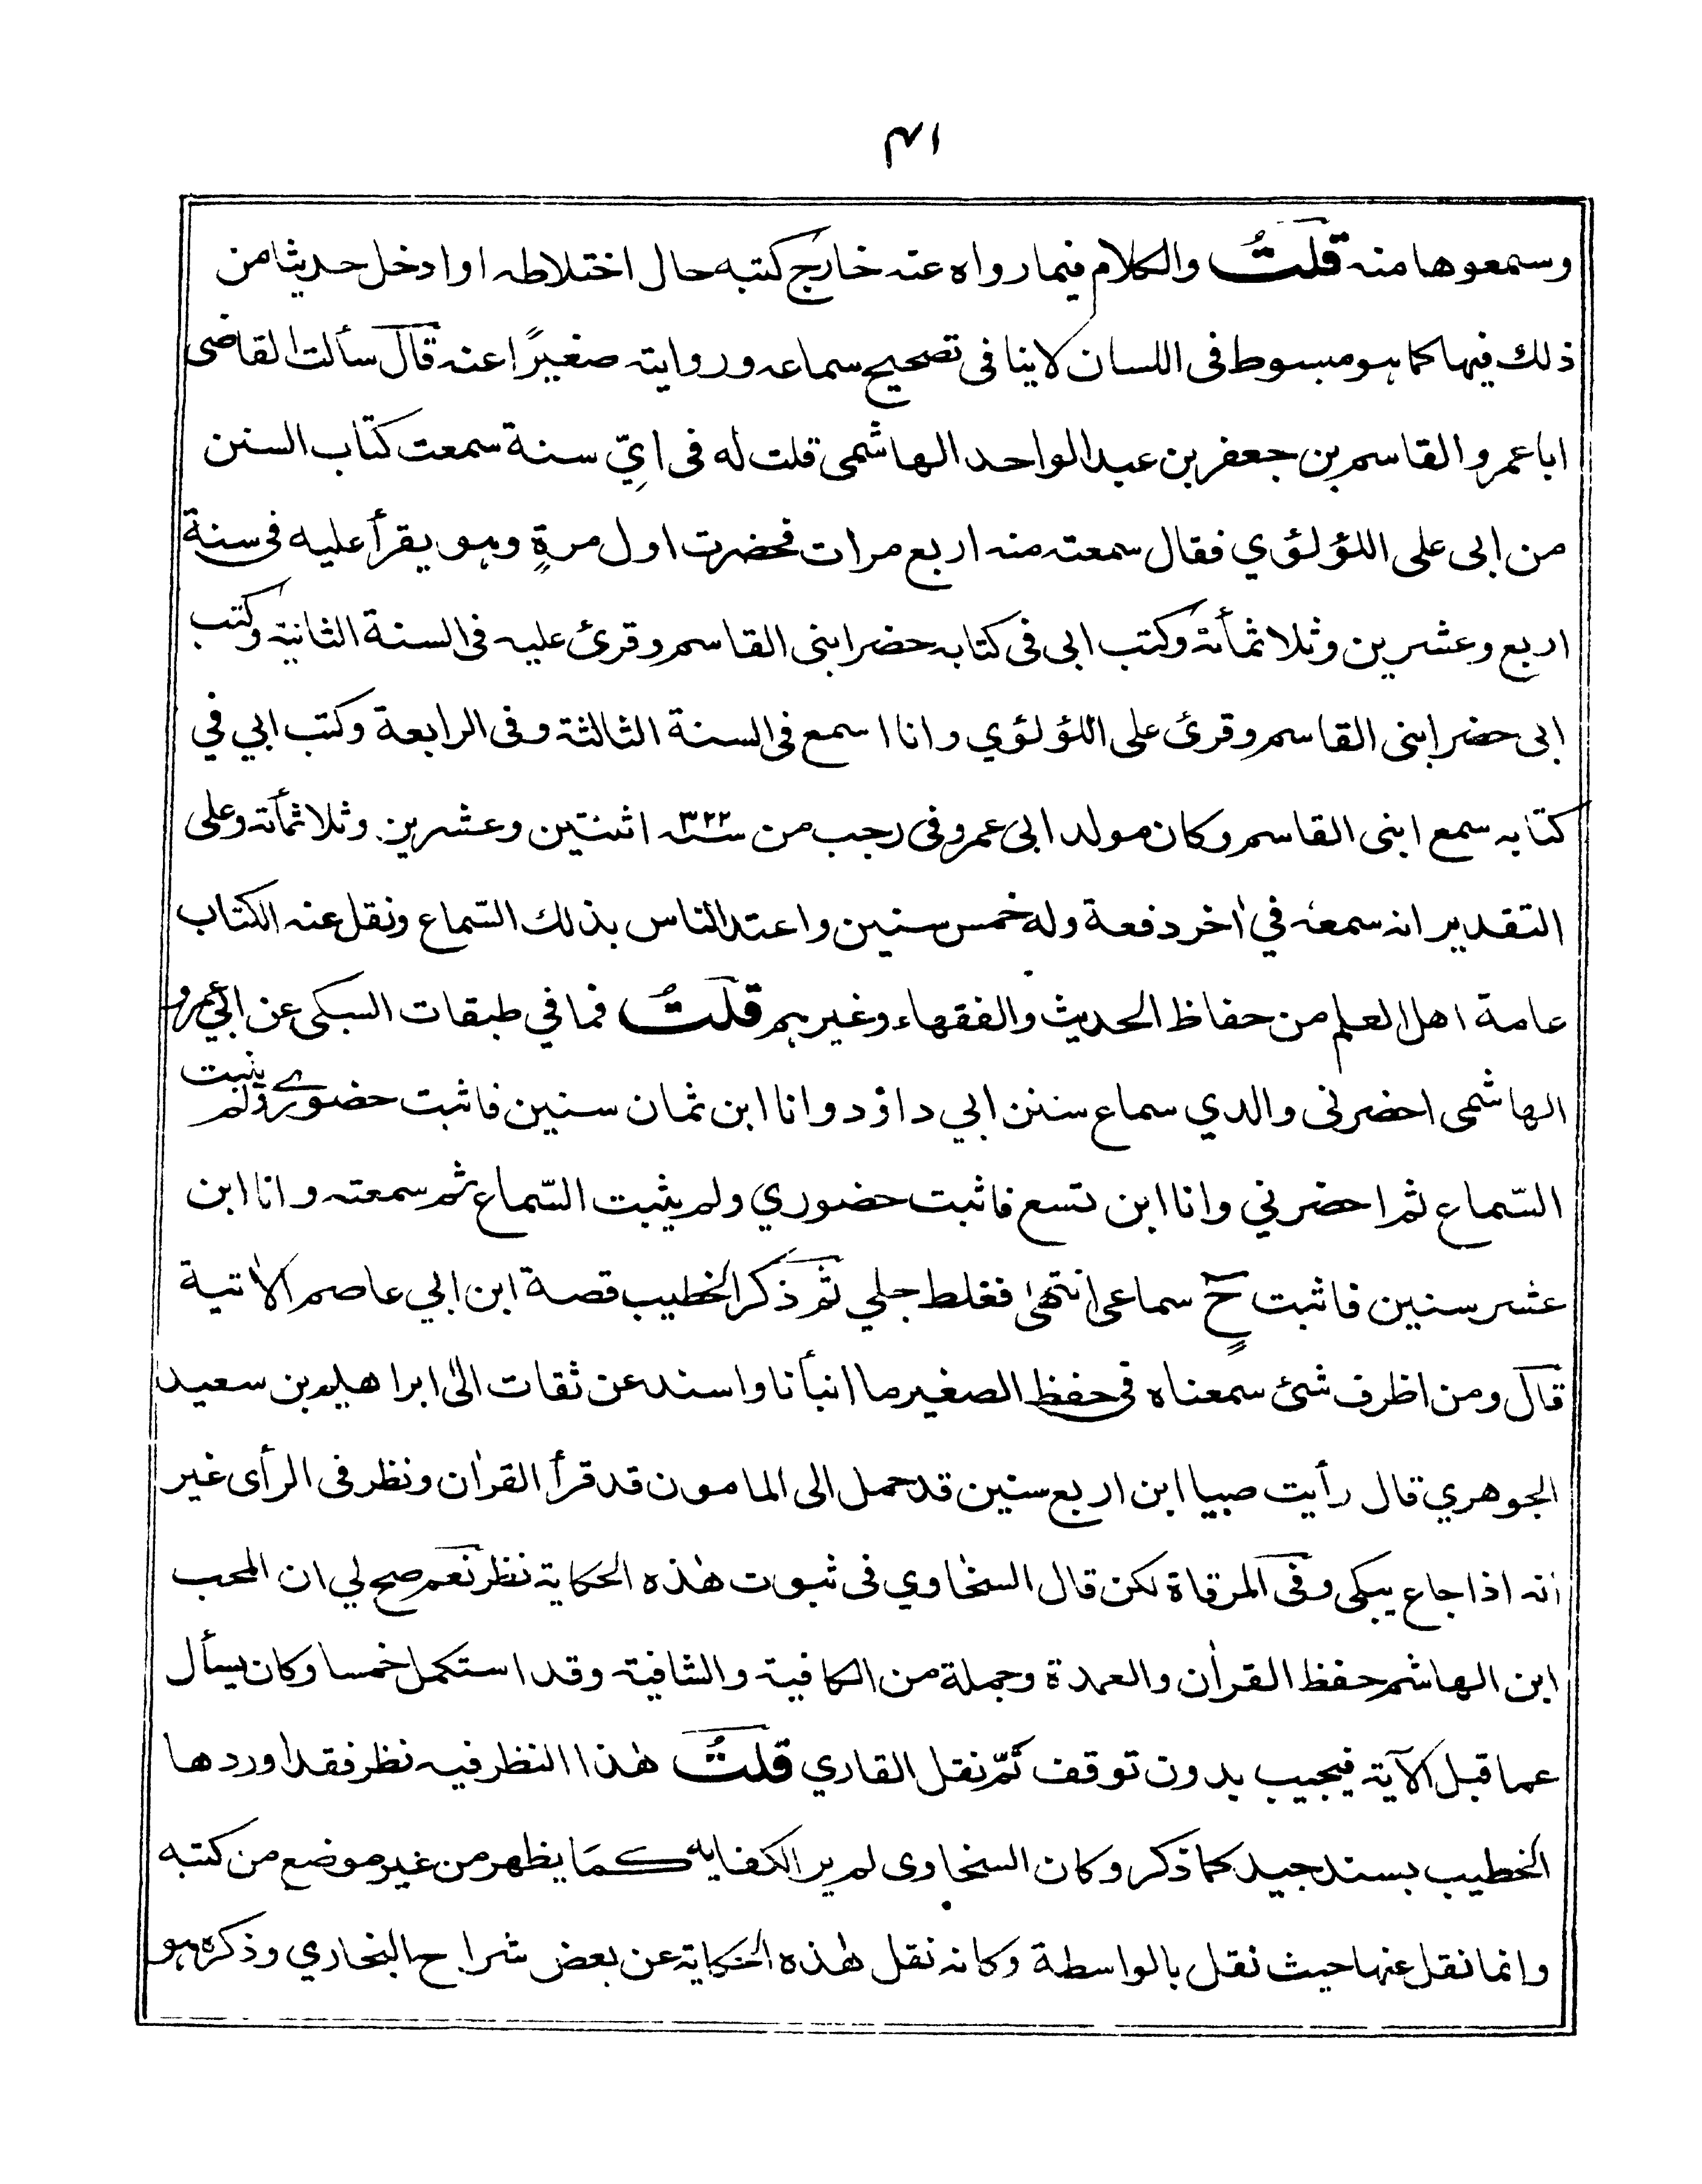 ۴۱
وسمعوها منه قلتُ والكلام فيما رواه عنه خارج كتبه حال اختلاطه او ادخل حديثا من
ذلك فيها كما هو مبسوط فى اللسان لاينافى تصحيح سماعه وروايته صغيرًا عنه قال سألت القاضى
ابا عمرو القاسم بن جعفر بن عبد الواحد الهاشمى قلت له فى ايِّ سنة سمعت كتاب السنن
من ابى على اللؤلؤي فقال سمعته منه اربع مرات فحضرت اول مرةٍ وهو يقرأ عليه فى سنة
اربع وعشرين وثلاثمأئة وكتب ابى فى كتابه حضر ابنى القاسم وقرئ عليه فى السنة الثانية وكتب
ابى حضر ابنى القاسم وقرئ على اللؤلؤي وانا اسمع فى السنة الثالثة وفى الرابعة وكتب ابي في
كتابه سمع ابنى القاسم وكان مولد ابى عمرو فى رجب من سنه ۳۲۲ اثنتين وعشرين وثلاثمأئة وعلى
التقدير انه سمعه في اٰخر دفعة وله خمس سنين واعتد الناس بذلك السّماع ونقل عنه الكتاب
عامة اهل العلم من حفاظ الحديث والفقهاء وغيرهم قلتُ فما في طبقات السبكى عن ابي عمرو
الهاشمى احضرنى والدي سماع سنن ابي داؤد وانا ابن ثمان سنين فاثبت حضوري ولم يثبت
السّماع ثم احضرني وانا ابن تسع فاثبت حضوري ولم يثبت السّماع ثم سمعته وانا ابن
عشر سنين فاثبت حٍ سماعى انتهىٰ فغلط جلي ثم ذكر الخطيب قصة ابن ابي عاصم الاٰتية
قال ومن اظرف شئ سمعناه فى حفظ الصغير ما انبأنا واسند عن ثقات الىٰ ابراهيم بن سعيد
الجوهري قال رأيت صبيا ابن اربع سنين قد حمل الى المامون قد قرأ القراٰن ونظر فى الرأى غير
انه اذا جاع يبكى وفى المرقاة لكن قال السخاوي فى ثبوت هٰذه الحكاية نظر نعم صح لي ان المحب
ابن الهاشم حفظ القراٰن والعمدة وجملة من الكافية والشافية وقد استكمل خمسا وكان يسأل
عما قبل الآية فيجيب بدون توقف ثمّ نقل القاري قلتُ هٰذا النظر فيه نظر فقد اوردها
الخطيب بسند جيد كما ذكر وكان السخاوى لم ير الكفايه كما يظهر من غير موضع من كتبه
وانما نقل عنها حيث نقل بالواسطة وكانه نقل هٰذه الحكاية عن بعض شراح البخاري وذكره هو